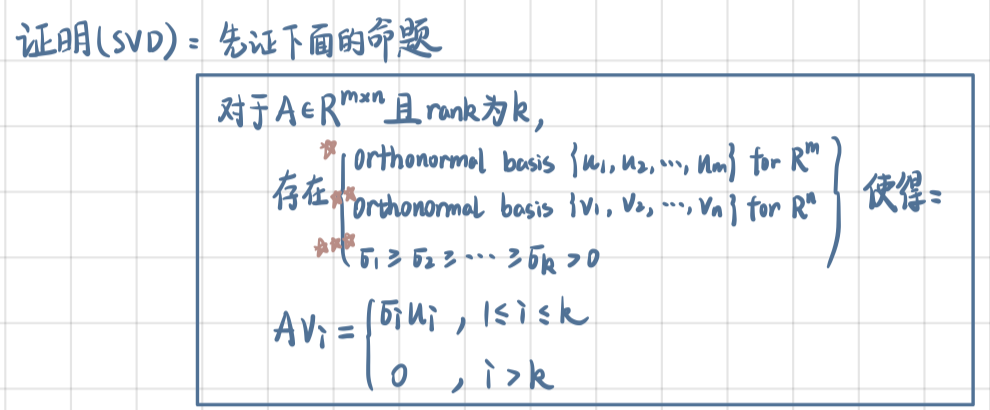 证明(SVD): 先证下面的命题
对于A∈R^{m×n}且rank为k,
orthonormal basis {u₁, u₂, ..., uₘ} for R^m
存在 orthonormal basis {v₁, v₂, ..., vₙ} for R^n 使得:
σ₁ ≥ σ₂ ≥ ... ≥ σₖ > 0
Avᵢ = { σᵢuᵢ , 1≤i≤k
0 , i>k